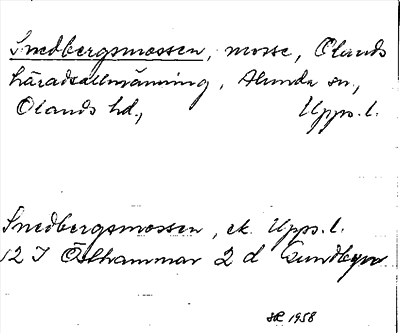 Snedbergsmossen, mosse, Olands
häradsallmänning, Alunda sn,
Olands hd, Upps. l.
Snedbergsmossen, ek. Upps. l.
12 I Östhammar 2 d Sundbyn
SR 1958